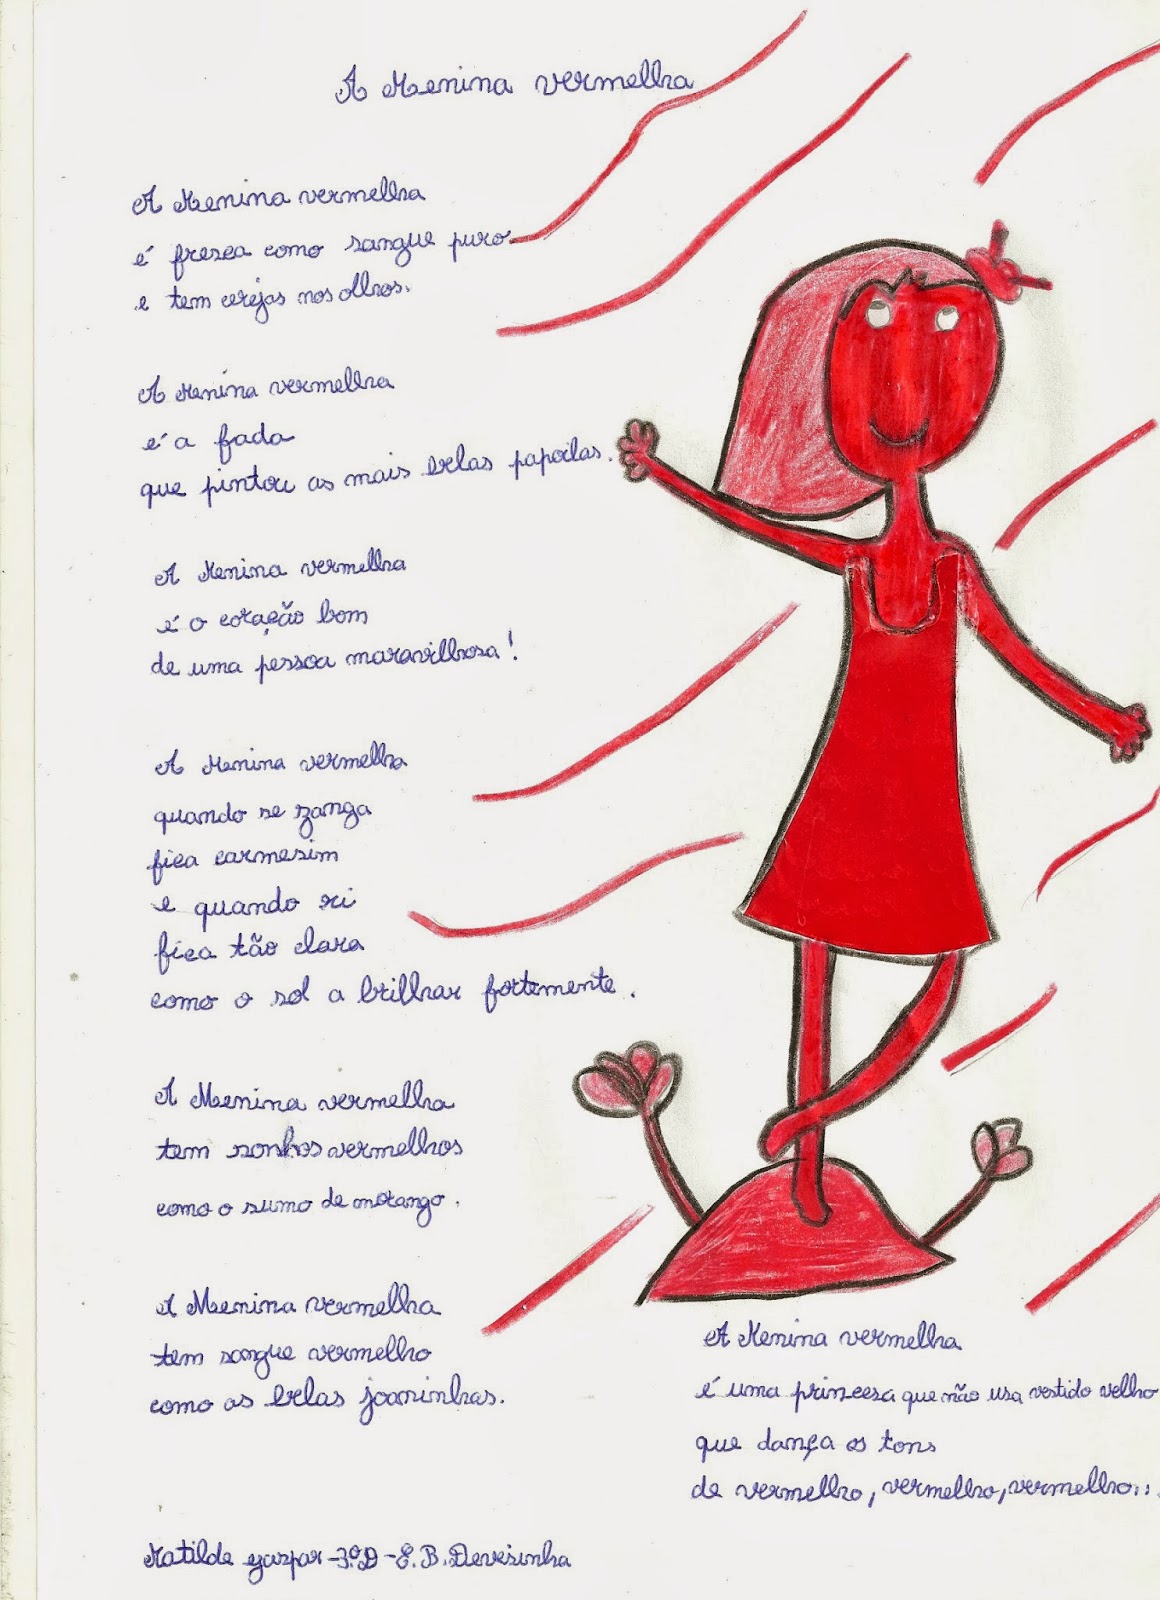 A Menina vermelha
A Menina vermelha
é fresca como sangue puro
e tem cerejas nos olhos.
A Menina vermelha
é a fada
que pintou as mais belas papoilas.
A Menina vermelha
é o coração bom
de uma pessoa maravilhosa!
A Menina vermelha
quando se zanga
fica carmesim
e quando ri
fica tão clara
como o sol a brilhar fortemente.
A Menina vermelha
tem sonhos vermelhos
como o sumo de morango.
A Menina vermelha
tem sangue vermelho
como as belas joaninhas.
A Menina vermelha
é uma princesa que não usa vestido velho
que dança os tons
de vermelho, vermelho, vermelho...
Matilde Gaspar - 3.º D - E. B. Devesinha